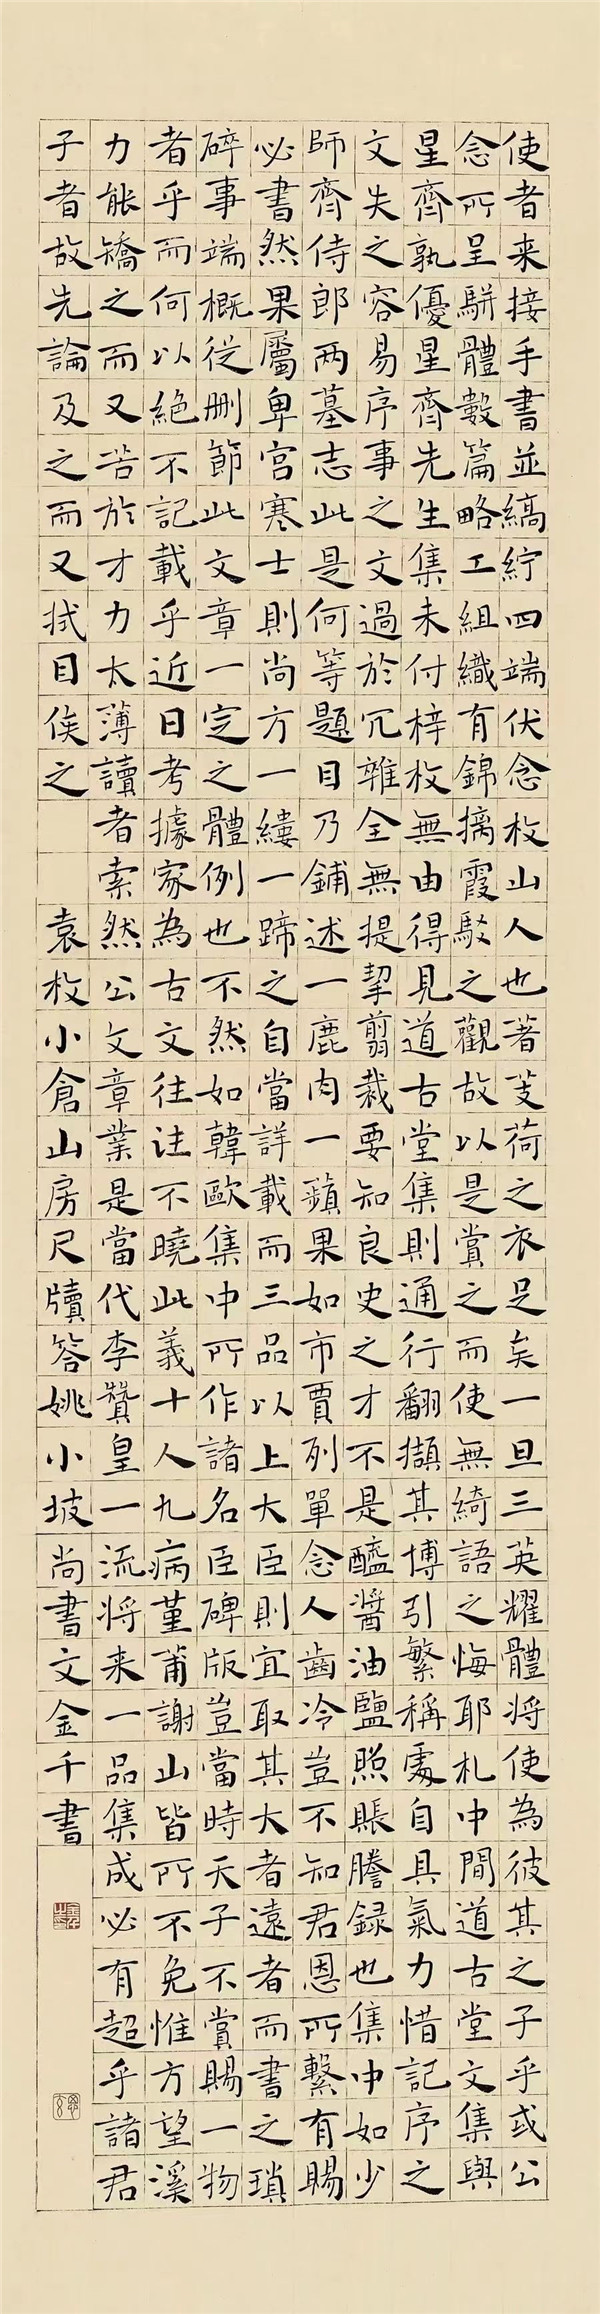 使者来接手書並縞紵四端伏念枚山人也著芰荷之衣足矣一旦三英耀體将使為彼其之子乎或公
念所呈駢體數篇略工組織有錦摛霞駁之觀故以是賞之而使無綺語之悔耶札中間道古堂文集與
星齊孰優星齊先生集未付梓枚無由得見道古堂集則通行翻擷其博引繁稱處自具氣力惜記序之
文失之容易序事之文過於冗雜全無提挈翦裁要知良史之才不是醯醬油鹽照賬謄録也集中如少
師齊侍郎两墓志此是何等題目乃鋪述一鹿肉一蘋果如市賈列單念人齒冷豈不知君恩所繫有賜
必書然果屬卑宫寒士則尚方一縷一蹄之自當詳載而三品以上大臣則宜取其大者遠者而書之瑣
碎事端概從删節此文章一定之體例也不然如韓歐集中所作諸名臣碑版豈當時天子不賞賜一物
者乎而何以絶不記載乎近日考據家為古文往注不曉此義十人九病堇甫謝山皆所不免惟方望溪
力能矯之而又苦於才力太薄讀者索然公文章業是當代李贊皇一流将来一品集成必有超乎諸君
子者故先論及之而又拭目俟之 袁枚小倉山房尺牘答姚小坡尚書文金千書